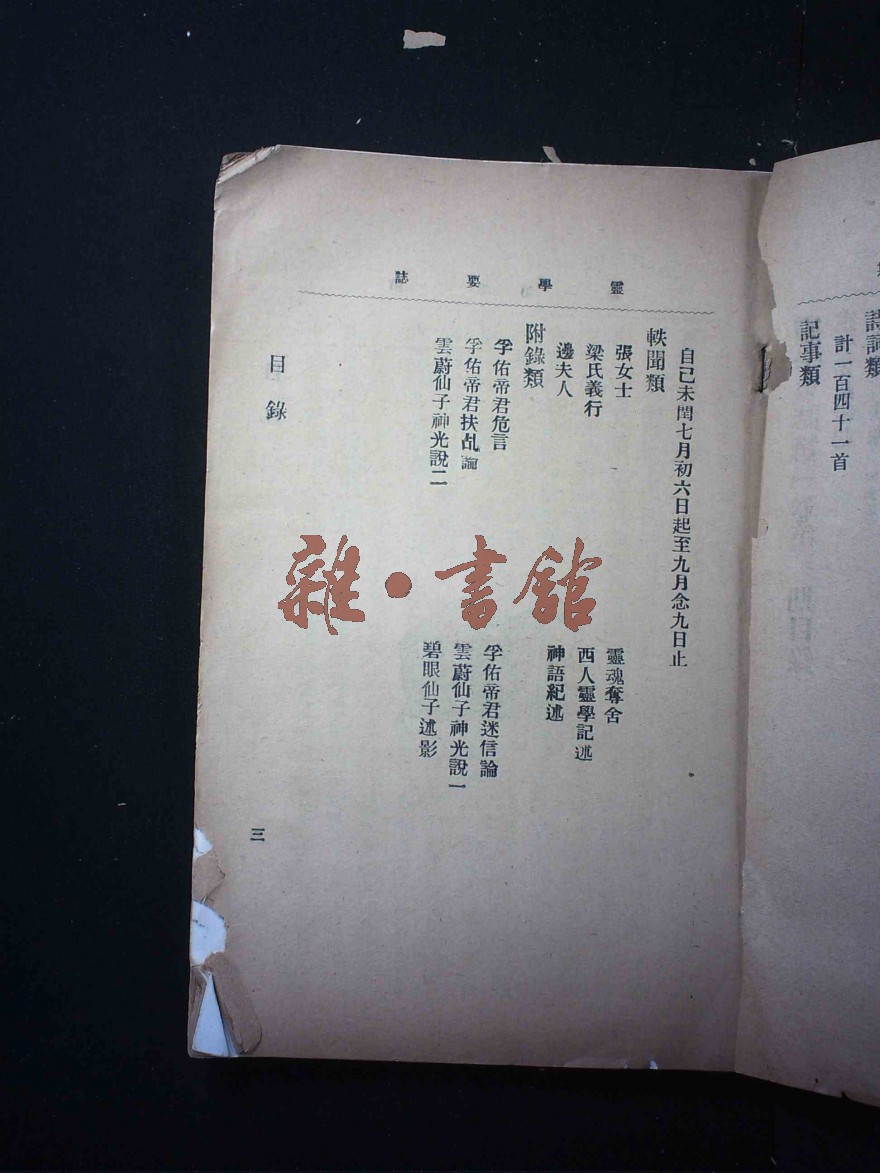 詩詞類
計一百四十一首
記事類
靈學要誌
自己未閏七月初六日起至九月念九日止
軼聞類
張女士
靈魂奪舍
梁氏義行
西人靈學記述
邊夫人
神語紀述
附錄類
孚佑帝君危言
孚佑帝君迷信論
孚佑帝君扶乩論
雲蔚仙子神光說一
雲蔚仙子神光說二
碧眼仙子述影
目錄
三
雜·書館